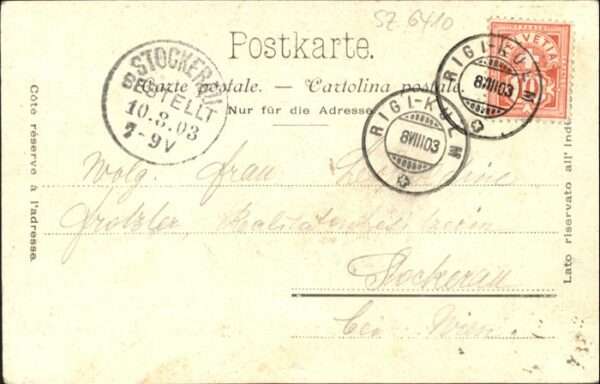 SZ 6410
Postkarte.
Carte postale. — Cartolina postale.
Nur für die Adresse
Côté réservé à l'adresse.
Lato riservato all'
STOCKERAU
BESTELLT
10.8.03
7-9V
RIGI-KULM
8VIII03
RIGI-KULM
8VIII03
HELVETIA
Wolg. Frau
Stockerau
bei Wien.